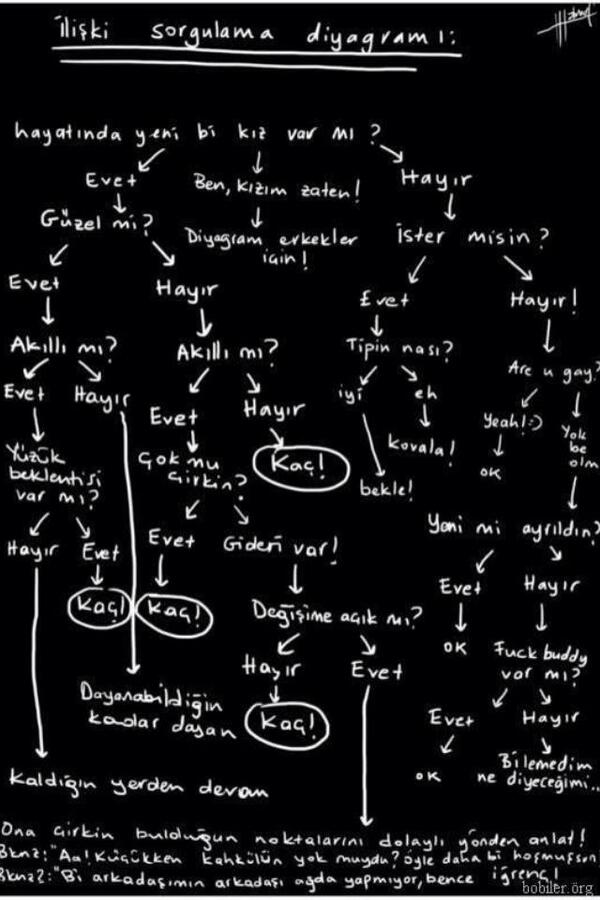 ilişki sorgulama diyagramı:
hayatında yeni bi kız var mı?
Evet
Ben, kızım zaten!
Hayır
Güzel mi?
Diyagram erkekler
için!
İster misin?
Evet
Hayır
Evet
Hayır!
Akıllı mı?
Akıllı mı?
Tipin nası?
Are u gay?
Evet
Hayır
Evet
Hayır
iyi
eh
Yeah!:)
Yok
be
olm
Yüzük
beklentisi
var mı?
Çok mu
çirkin?
Kaç!
kovala!
OK
bekle!
Hayır
Evet
Evet
Gideri var!
Yeni mi ayrıldın?
Kaç!
Kaç!
Değişime açık mı?
Evet
Hayır
Hayır
Evet
OK
Fuck buddy
var mı?
Dayanabildiğin
kadar dayan
Kaç!
Evet
Hayır
Kaldığın yerden devam
OK
Bilemedim
ne diyeceğimi..
Ona çirkin bulduğun noktalarını dolaylı yönden anlat!
Bknz: "Aa! Küçükken kahkülün yok muydu? öyle daha bi hoşmuşsun
Bknz2: "Bi arkadaşımın arkadaşı ağda yapmıyor, bence iğrenç!
bobiler.org